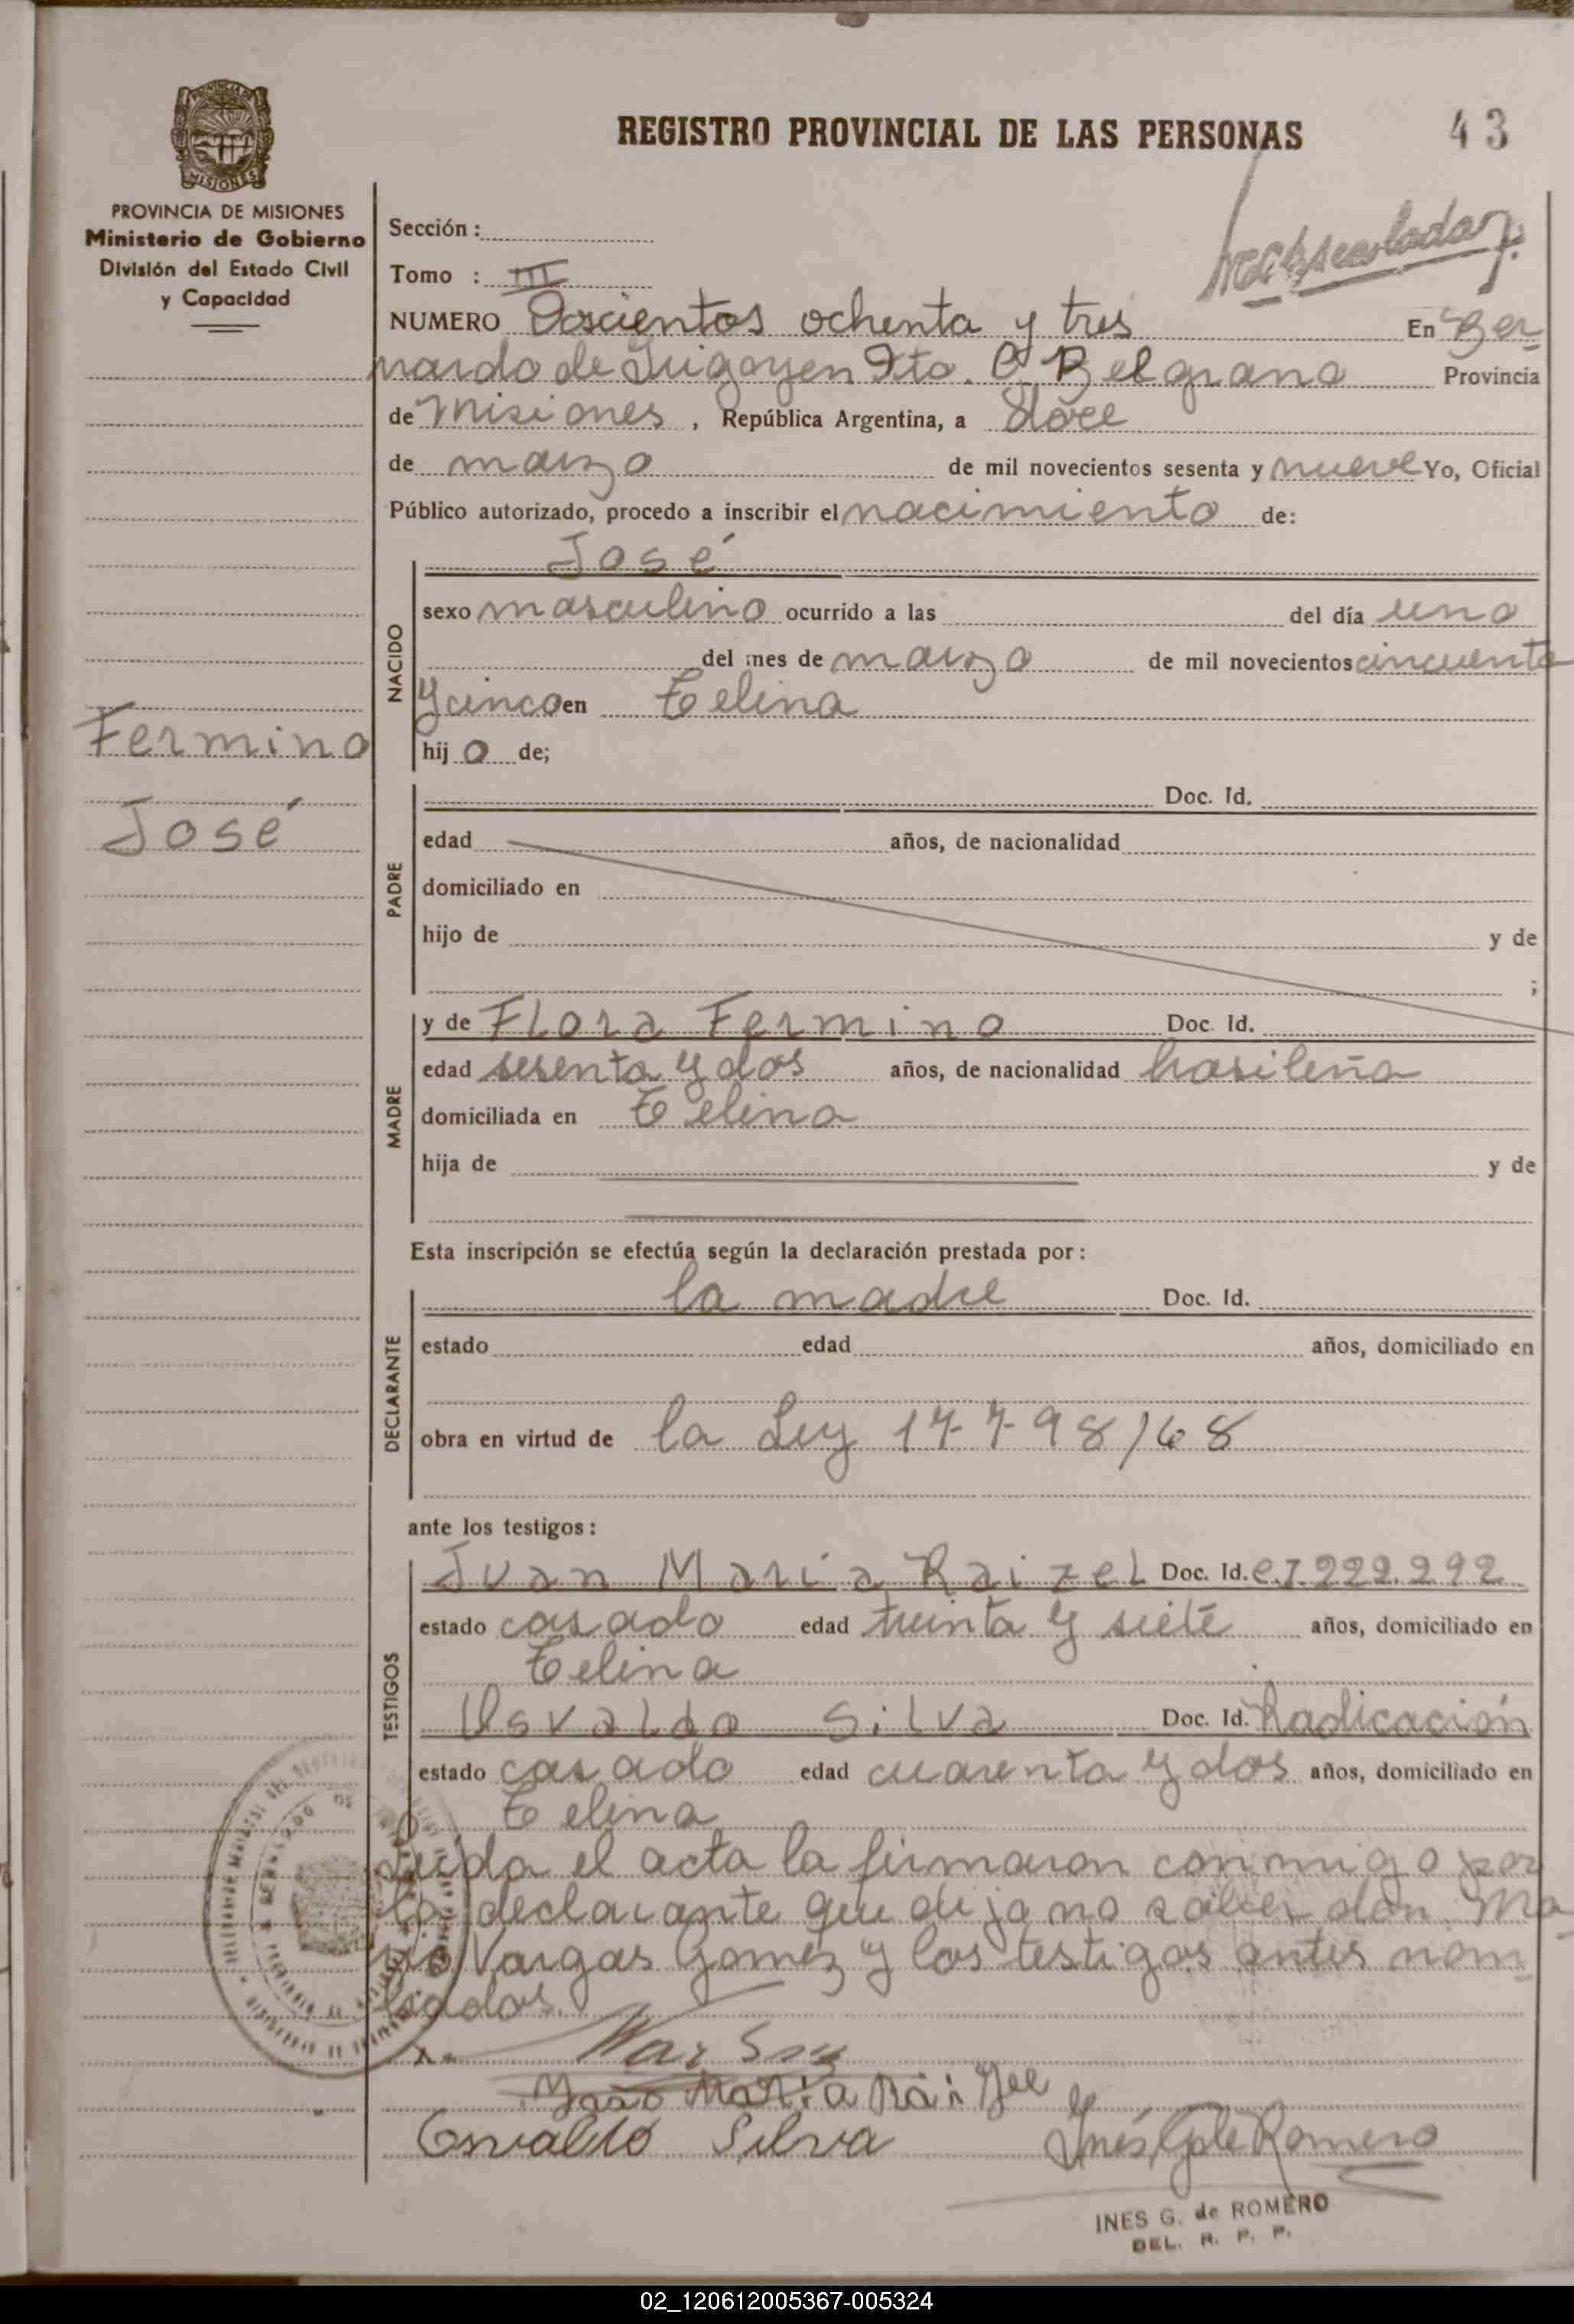 REGISTRO PROVINCIAL DE LAS PERSONAS
43
MISIONES
PROVINCIA DE MISIONES
Ministerio de Gobierno
División del Estado Civil
y Capacidad
Sección :
Tomo : III
NUMERO Doscientos ochenta y tres En Ber
nardo de Irigoyen Dto. G. Belgrano Provincia
de Misiones , República Argentina, a doce
de marzo de mil novecientos sesenta y nueve Yo, Oficial
Público autorizado, procedo a inscribir el nacimiento de:
José
NACIDO
sexo masculino ocurrido a las del día uno
del mes de marzo de mil novecientos cincuenta
y cinco en Celina
hij o de;
Fermino
José
PADRE
Doc. Id.
edad años, de nacionalidad
domiciliado en
hijo de y de
;
MADRE
y de Flora Fermino Doc. Id.
edad sesenta y dos años, de nacionalidad brasileña
domiciliada en Celina
hija de y de
Esta inscripción se efectúa según la declaración prestada por :
DECLARANTE
la madre Doc. Id.
estado edad años, domiciliado en
obra en virtud de la Ley 17798/68
ante los testigos :
TESTIGOS
Juan María Raizel Doc. Id. C.I 222.292
estado casado edad treinta y siete años, domiciliado en
Celina
Osvaldo Silva Doc. Id. Radicación
estado casado edad cuarenta y dos años, domiciliado en
Celina
Leida el acta la firmaron conmigo por
la declarante que dijo no saber don Ma
rio Vargas Gomez y los testigos antes nom
brados.
Osvaldo Silva
Inés G de Romero
INES G. de ROMERO
DEL. R. P. P.
02_120612005367-005324